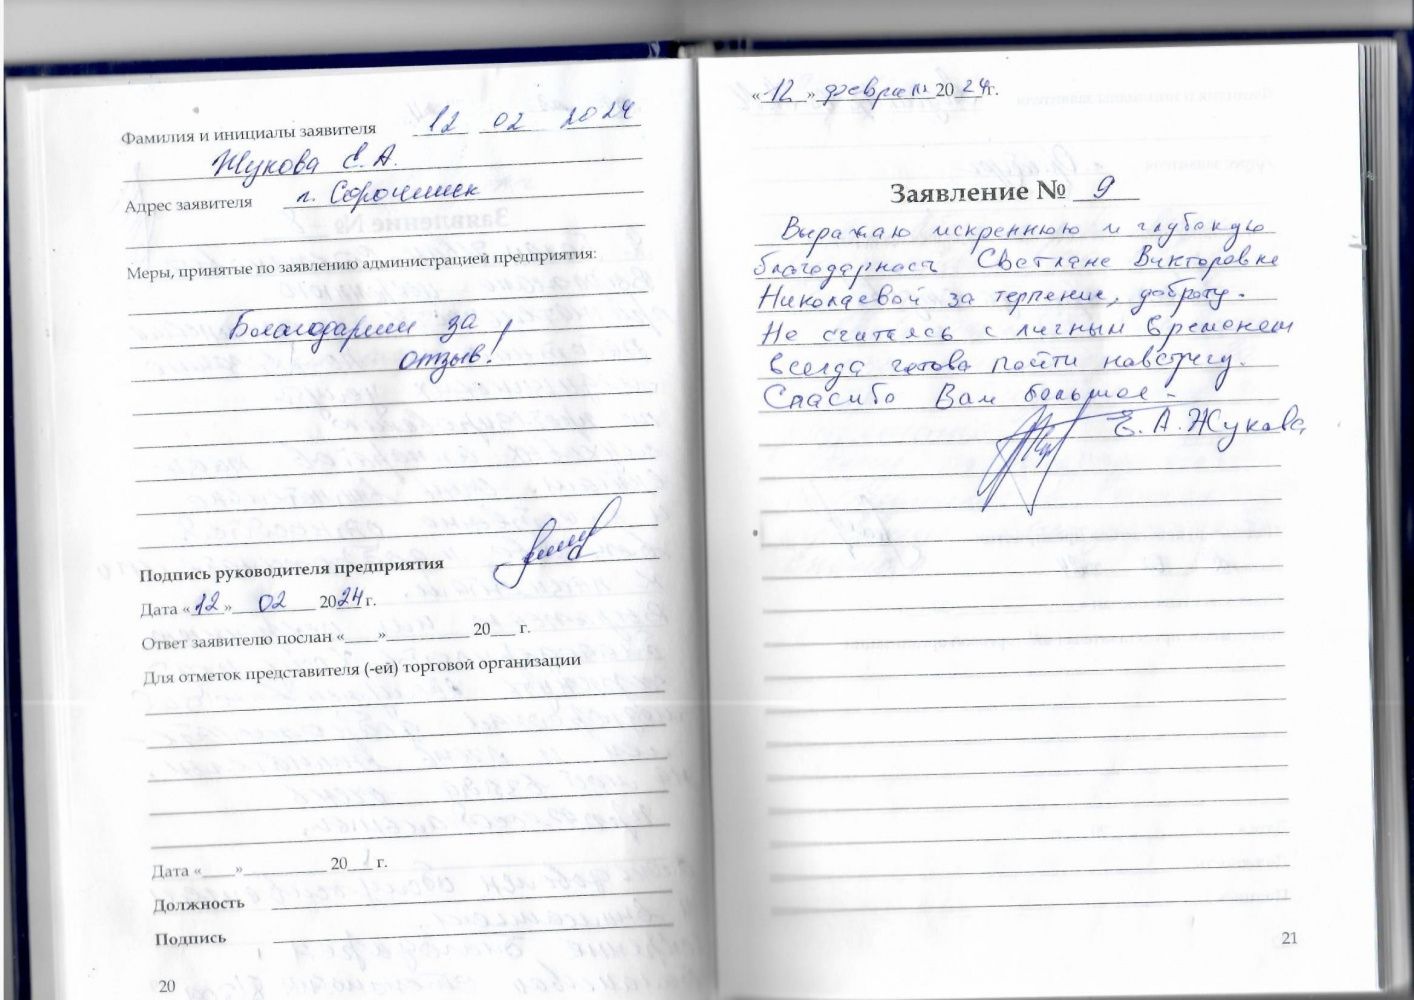 Фамилия и инициалы заявителя 12 02 2024
Жукова Е. А.
Адрес заявителя г. Сорочинск
Меры, принятые по заявлению администрацией предприятия:
Благодарим за
отзыв!
Подпись руководителя предприятия
Дата «12» 02 2024 г.
Ответ заявителю послан «____»__________ 20___ г.
Для отметок представителя (-ей) торговой организации
Дата «____»__________ 20___ г.
Должность
Подпись
20
«12» февраля 2024 г.
Заявление № 9
Выражаю искреннюю и глубокую
благодарность Светлане Викторовне
Николаевой за терпение, доброту.
Не считаясь с личным временем
всегда готова пойти навстречу.
Спасибо Вам большое -
Е. А. Жукова
21